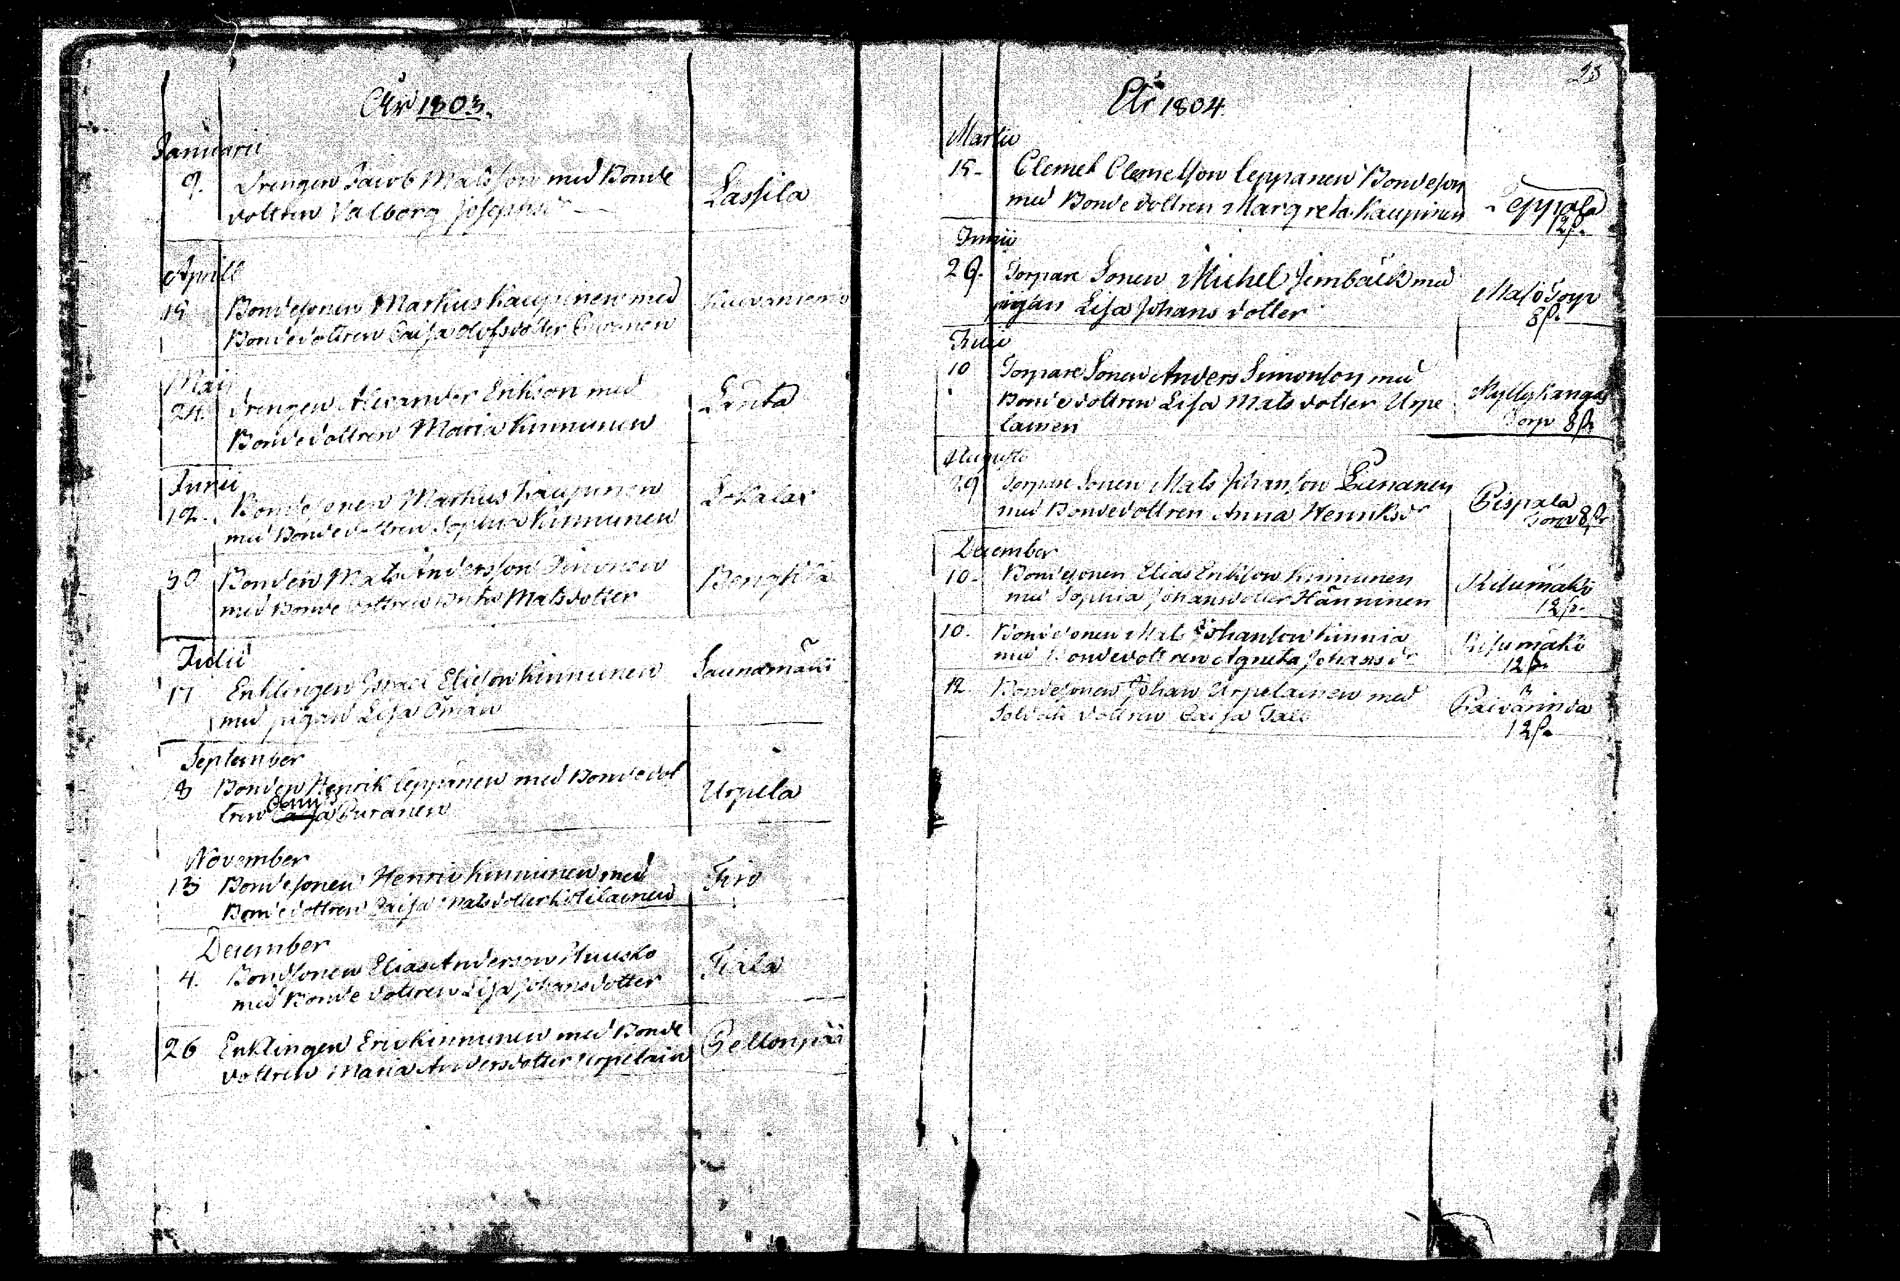 År 1803.
Januarii
9. Drengen Jacob Matsson med Bonde
dottren Valborg Josephsdr
Lassila
Aprill
15 Bondesonen Markus Kaupinen med
Bondedottren Caisa Olofsdotter
Maij
24. Drengen Alexander Erikson med
Bondedottren Maria Kinnunen
Junii
12. Bondesonen Markus Kaupinen
med Bondedottren Sophia Kinnunen
30 Bonden Mats Andersson
med Bondedottren Matsdotter
Julii
17 Enklingen Israel Eliesson Kinnunen
med pigan Lisa Öman
Saunamäki
September
8 Bonden Henrik Leppänen med Bondedot
tren Puranen
Urpila
November
13 Bondesonen Henric Kinnunen med
Bondedottren Caisa Matsdotter
December
4. Bondsonen Elias Anderson
med Bondedottren Lisa Johansdotter
26 Enklingen Eric Kinnunen med Bonde
dottren Maria Andersdotter Urpelain
Pellonpää
23
År 1804
Martii
15- Clemet Clemetson Leppanen Bondeson
med Bondedottren Margreta Kaupinen
Leppala
12 s.
Junii
26. Torpare Sonen Michel Jernbäck med
pigan Lisa Johansdotter
Torp
8 s.
Julii
10 Torpare Sonen Anders Simonson med
Bondedottren Lisa Matsdotter Urpe
lainen
Myllykangas
Torp 8 s.
Augusti
29 Torpare Sonen Mats Johanson
med Bondedottren Anna Henriksdr
Pispala
Torp 8 s.
December
10- Bondesonen Elias Erikson Kinnunen
med Sophia Johansdotter Hänninen
Risumäki
12 s.
10. Bondesonen Mats Johanson Kinnia
med Bondedottren Agneta Johansdr
Risumäki
12 s.
12 Bondesonen Johan Urpelainen med
Soldate dottren Caisa
Paivärinda
12 s.